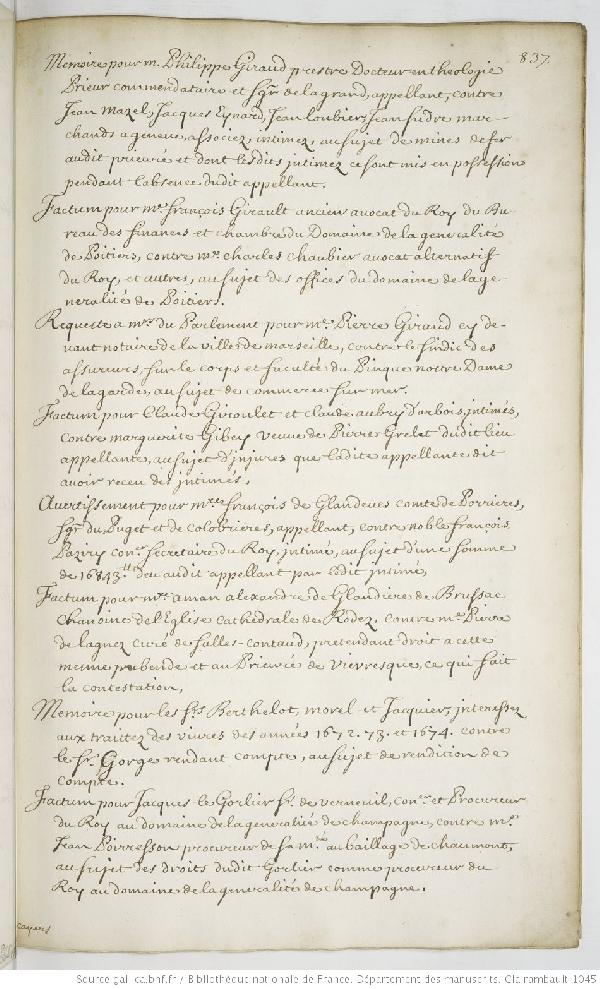 837.
Memoire pour m. Philippe Giraud prestre Docteur en theologie
Prieur commendataire et Sgr de lagrand, appellant, contre
Jean Mazel, Jacques Eynard, Jean Loubier, Jean Sudre mar-
chands a geneve, associez, intimez, au sujet de mines de fer
audit prieuré et dont lesdits intimez ce sont mis en possession
pendant l'absence dudit appellant.
Factum pour me. françois Girault ancien avocat du Roy du Bu-
reau des finances et chambre du Domaine de la generalité
de Poitiers, contre me. charles chaubier avocat alternatif
du Roy, et autres, au sujet des offices du domaine de la ge-
neralité de Poitiers.
Requeste a mrs. du Parlement pour me. Pierre Giraud cy de-
vant notaire de la ville de marseille, contre le sindic des
assureurs, sur le corps et faculté du Pinque nostre Dame
de lagarde, au sujet de commerce sur mer.
Factum pour Claude Giroulet et claude aubry d'arbois, intimés,
contre marguerite Gibey veuve de Pierre Grelet dudit lieu
appellante, au sujet d'injures que ladite appellante dit
avoir receu des intimés.
Avertissement pour mre. françois de Glandeves comte de Porrieres,
Sgr du Puget et de colobrieres, appellant, contre noble françois
Paziry coner. Secretaire du Roy, intimé, au sujet d'une somme
de 16843.lt deu audit appellant par ledit intimé,
Factum pour me. aman alexandre de Glandiere de Brussac
chanoine de l'Eglise cathedrale de Rodez. contre me. Pierre
de lagnez curé de salles-contaud, pretendant droit a cette
meme prebende et au Prieuré de vievresque, ce qui fait
la contestation,
Memoire pour les srs. Berthelot, morel et Jacquier, interessez
aux traitez des vivres des années 1672. 73. et 1674. contre
le sr. Gorge rendant compte, au sujet de rendition de
compte.
Factum pour Jacques le Gorlier sr. de verneuil, coner. et Procureur
du Roy au domaine de la generalité de champagne, contre me.
Jean Poirresson procureur de sa mté. au baillage de chaumont,
au sujet des droits dudit Gorlier comme procureur du
Roy au domaine de la generalité de champagne.
Source gallica.bnf.fr / Bibliothèque nationale de France. Département des manuscrits. Clairambault 1045